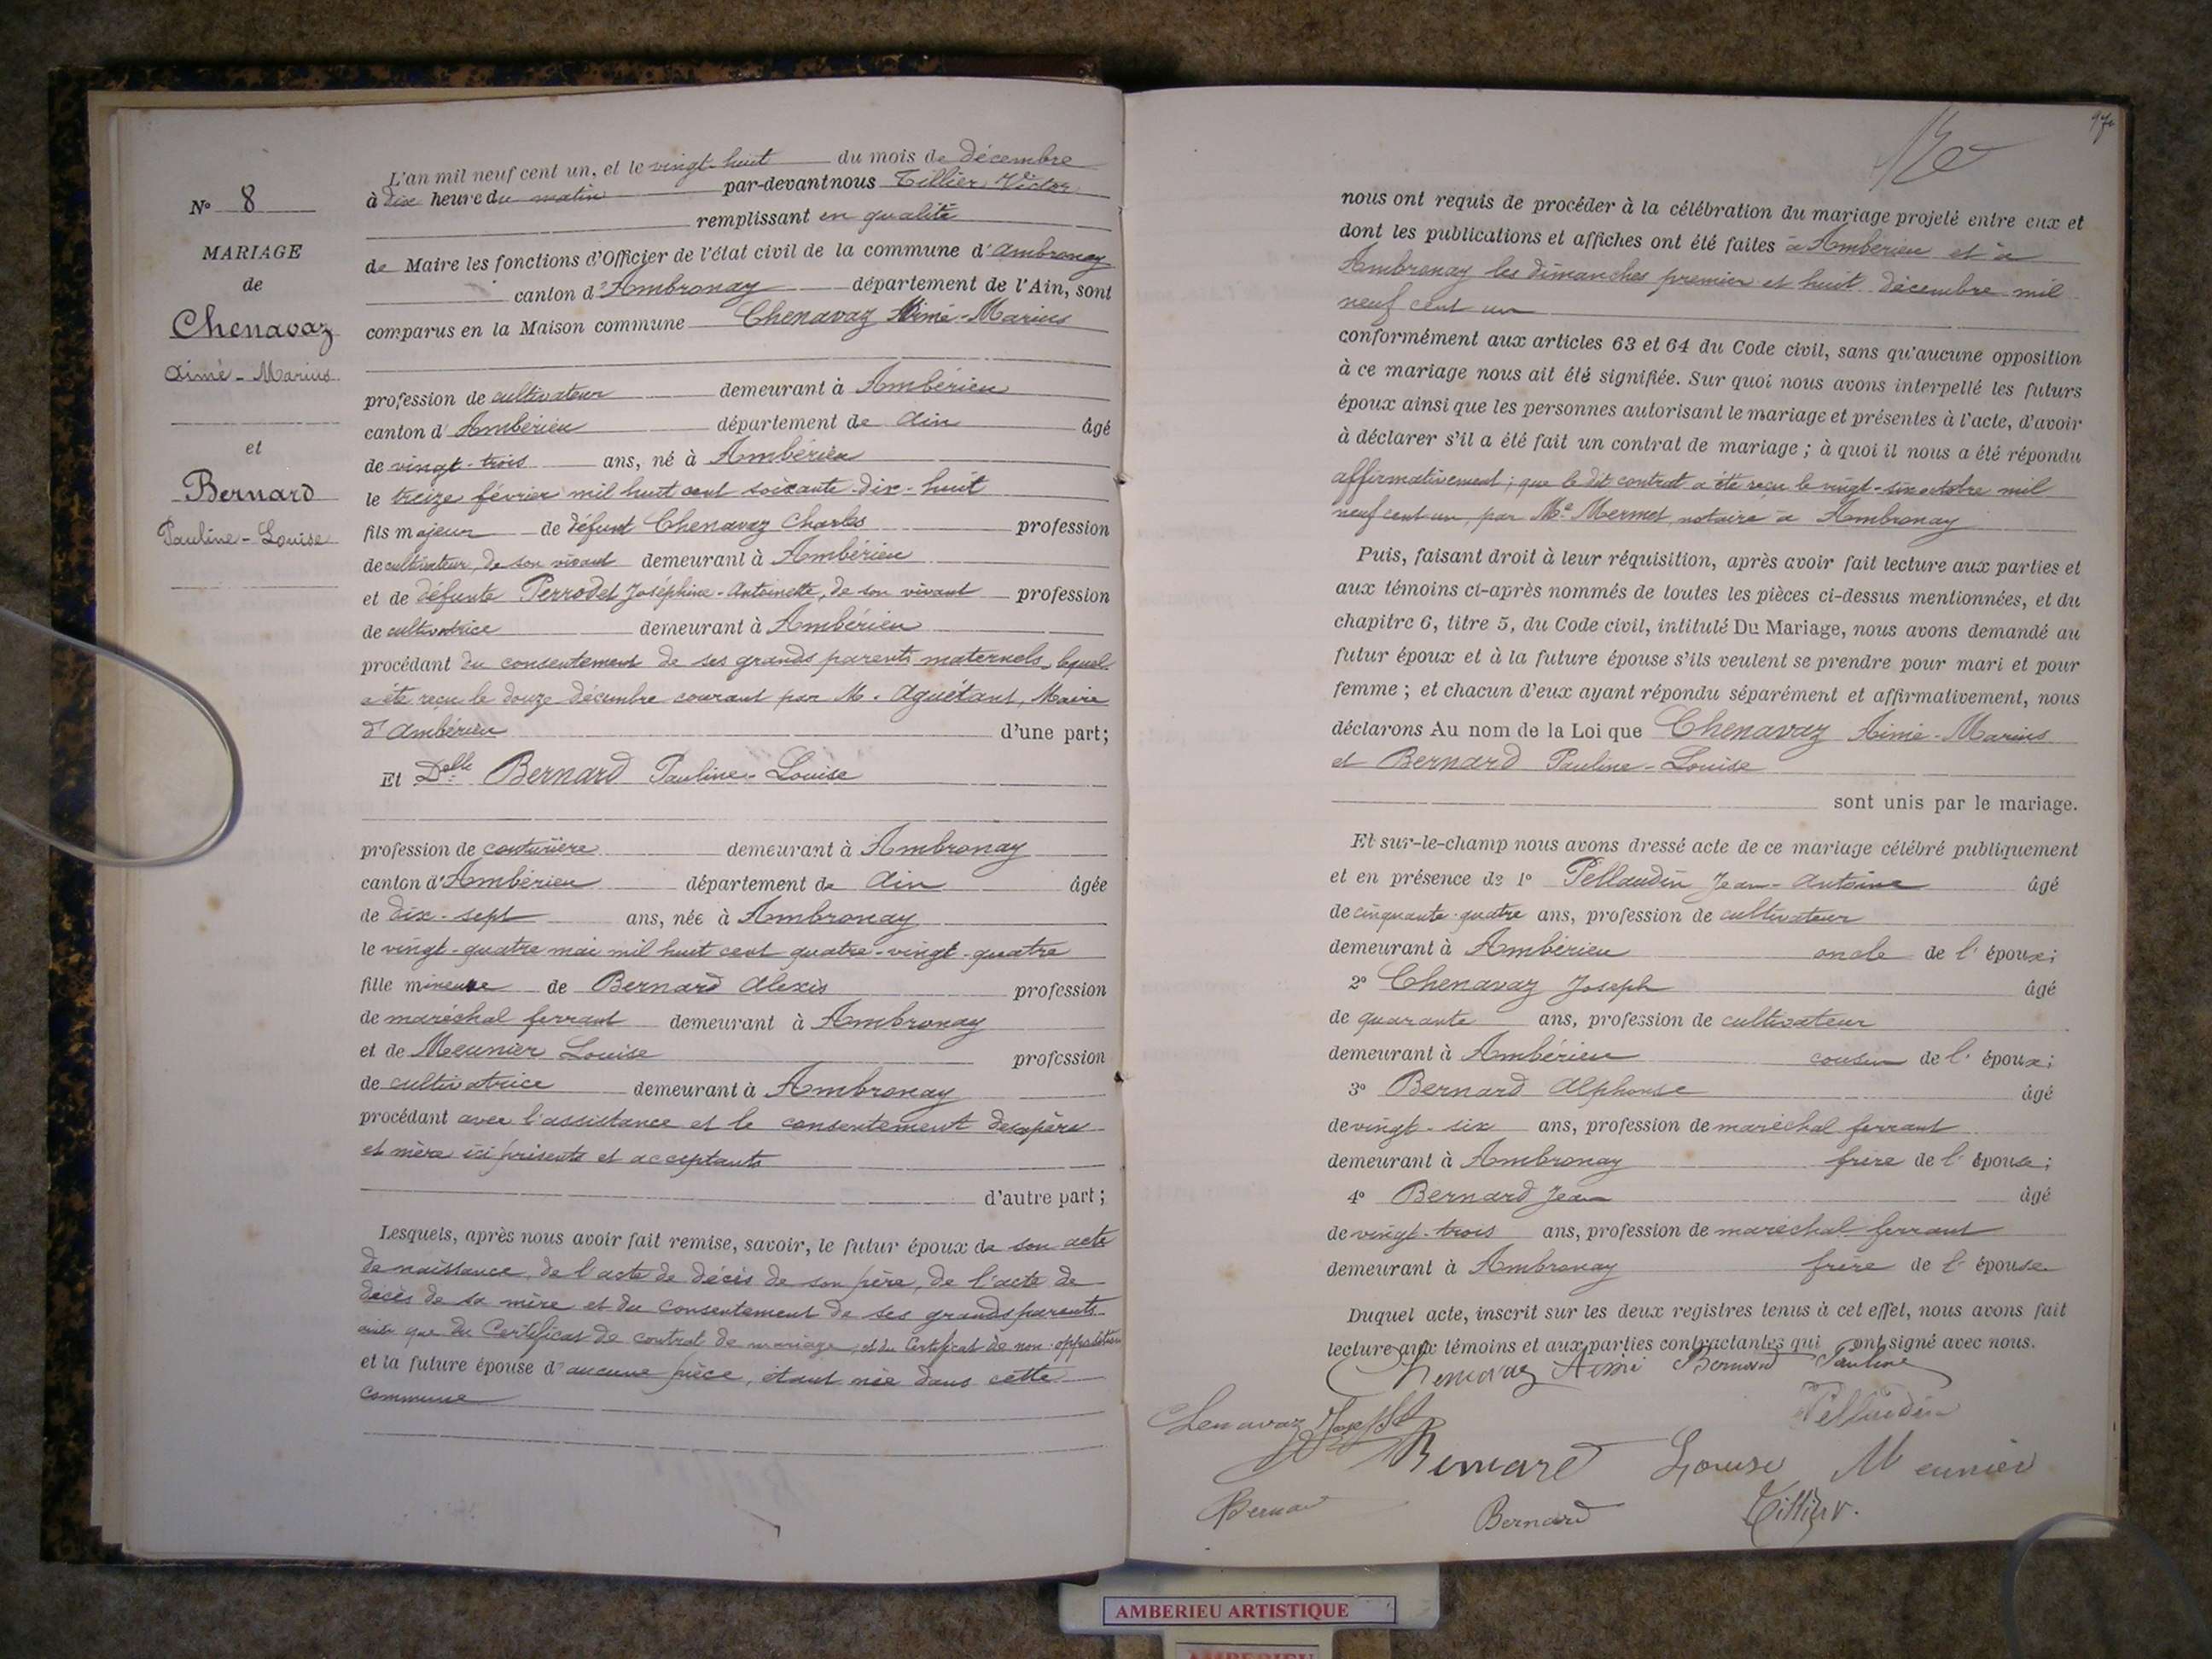 N° 8
MARIAGE
de
Chenavaz
Aimé-Marius
et
Bernard
Pauline-Louise
L'an mil neuf cent un, et le vingt-huit du mois de décembre
à dix heure du matin par-devant nous Tillier Victor
remplissant en qualité
de Maire les fonctions d'Officier de l'état civil de la commune d'Ambronay
canton d'Ambronay département de l'Ain, sont
comparus en la Maison commune Chenavaz Aimé-Marius
profession de cultivateur demeurant à Ambérieu
canton d'Ambérieu département de Ain âgé
de vingt-trois ans, né à Ambérieu
le treize février mil huit cent soixante-dix-huit
fils majeur de défunt Chenavaz Charles profession
de cultivateur, de son vivant demeurant à Ambérieu
et de défunte Perrodet Joséphine-Antoinette, de son vivant profession
de cultivatrice demeurant à Ambérieu
procédant du consentement de ses grands parents maternels, lequel
a été reçu le douze décembre courant par M. Aguétant, Maire
d'Ambérieu d'une part;
Et Delle Bernard Pauline-Louise
profession de couturière demeurant à Ambronay
canton d'Ambérieu département de Ain âgée
de dix-sept ans, née à Ambronay
le vingt-quatre mai mil huit cent quatre-vingt-quatre
fille mineure de Bernard Alexis profession
de maréchal ferrant demeurant à Ambronay
et de Meunier Louise profession
de cultivatrice demeurant à Ambronay
procédant avec l'assistance et le consentement de ses père
et mère ici présents et acceptants
d'autre part;
Lesquels, après nous avoir fait remise, savoir, le futur époux de son acte
de naissance, de l'acte de décès de son père, de l'acte de
décès de sa mère et du consentement de ses grands parents
ainsi que du Certificat de contrat de mariage, et du Certificat de non-opposition
et la future épouse d'aucune pièce, étant née dans cette
commune
97
nous ont requis de procéder à la célébration du mariage projeté entre eux et
dont les publications et affiches ont été faites à Ambérieu et à
Ambronay les dimanches premier et huit décembre mil
neuf cent un
conformément aux articles 63 et 64 du Code civil, sans qu'aucune opposition
à ce mariage nous ait été signifiée. Sur quoi nous avons interpellé les futurs
époux ainsi que les personnes autorisant le mariage et présentes à l'acte, d'avoir
à déclarer s'il a été fait un contrat de mariage; à quoi il nous a été répondu
affirmativement; que le dit contrat a été reçu le vingt-six octobre mil
neuf cent un, par Me Mermet, notaire à Ambronay
Puis, faisant droit à leur réquisition, après avoir fait lecture aux parties et
aux témoins ci-après nommés de toutes les pièces ci-dessus mentionnées, et du
chapitre 6, titre 5, du Code civil, intitulé Du Mariage, nous avons demandé au
futur époux et à la future épouse s'ils veulent se prendre pour mari et pour
femme; et chacun d'eux ayant répondu séparément et affirmativement, nous
déclarons Au nom de la Loi que Chenavaz Aimé-Marius
et Bernard Pauline-Louise
sont unis par le mariage.
Et sur-le-champ nous avons dressé acte de ce mariage célébré publiquement
et en présence de 1° Pellaudin Jean-Antoine âgé
de cinquante-quatre ans, profession de cultivateur
demeurant à Ambérieu oncle de l'époux;
2° Chenavaz Joseph âgé
de quarante ans, profession de cultivateur
demeurant à Ambérieu cousin de l'époux;
3° Bernard Alphonse âgé
de vingt-six ans, profession de maréchal ferrant
demeurant à Ambronay frère de l'épouse;
4° Bernard Jean âgé
de vingt-trois ans, profession de maréchal ferrant
demeurant à Ambronay frère de l'épouse
Duquel acte, inscrit sur les deux registres tenus à cet effet, nous avons fait
lecture aux témoins et aux parties contractantes qui ont signé avec nous.
Chenavaz Aimé Bernard Pauline
Chenavaz Joseph Pellaudin
Bernard Louise Meunier
Bernard Bernard Tillier.
AMBERIEU ARTISTIQUE
AMBERIEU